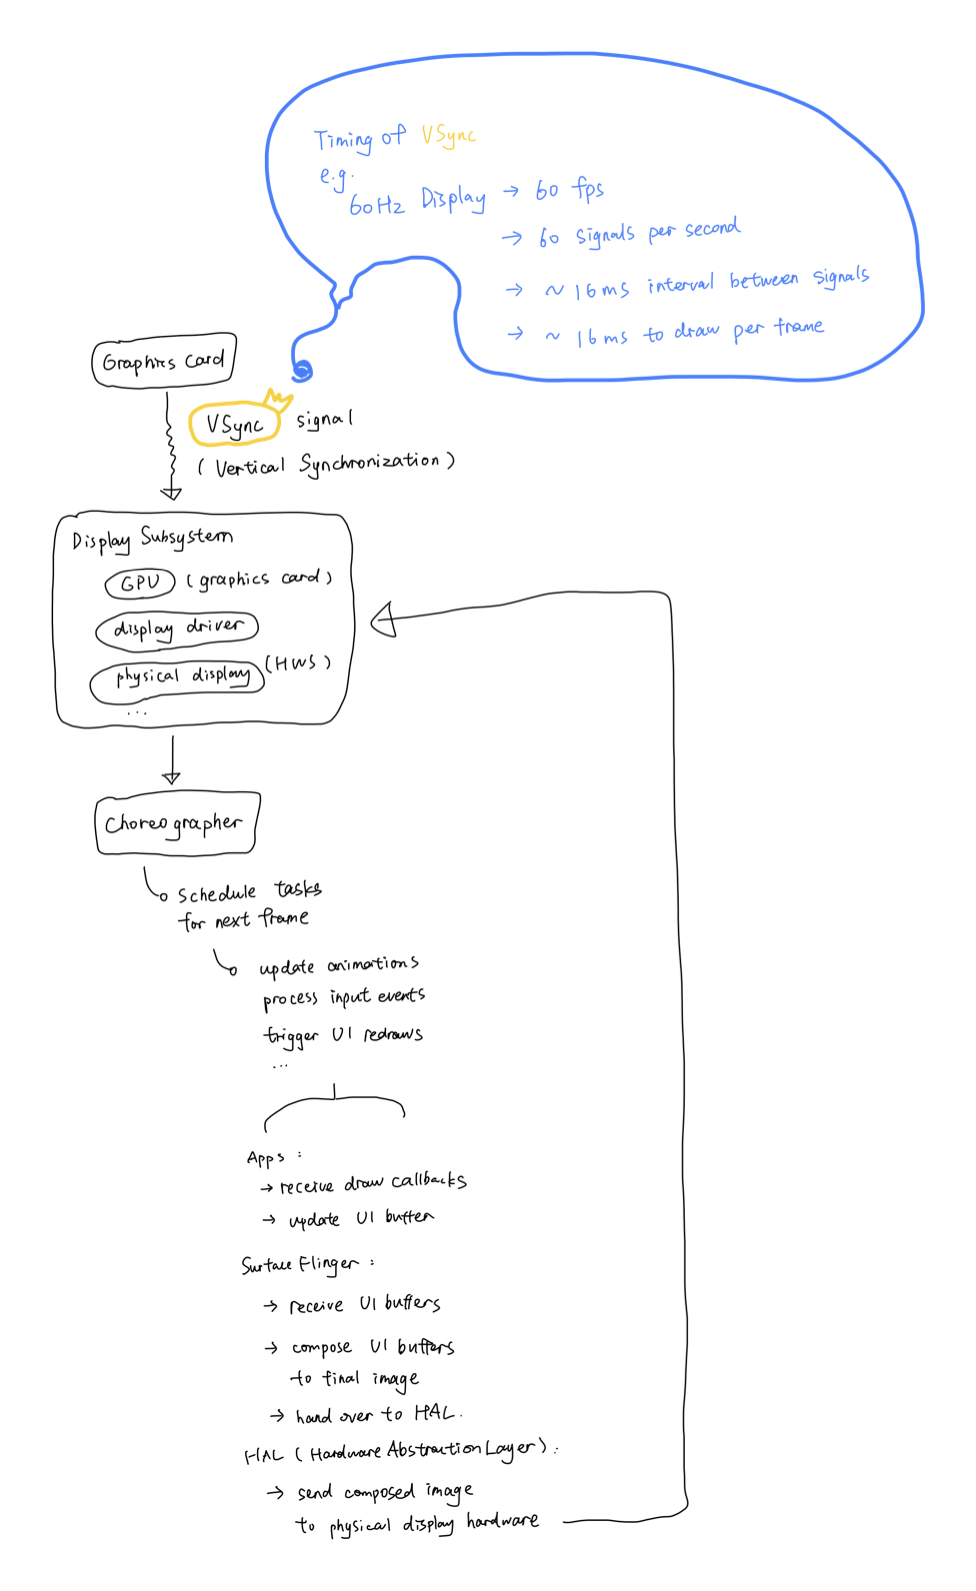 Timing of VSync
e.g.
60Hz Display → 60 fps
→ 60 signals per second
→ ~16ms interval between signals
→ ~16ms to draw per frame
Graphics Card
VSync signal
(Vertical Synchronization)
Display Subsystem
GPU (graphics card)
display driver
physical display (HWs)
...
Choreographer
schedule tasks
for next frame
update animations
process input events
trigger UI redraws
...
Apps:
→ receive draw callbacks
→ update UI buffer
Surface Flinger:
→ receive UI buffers
→ compose UI buffers
to final image
→ hand over to HAL.
HAL (Hardware Abstraction Layer):
→ send composed image
to physical display hardware